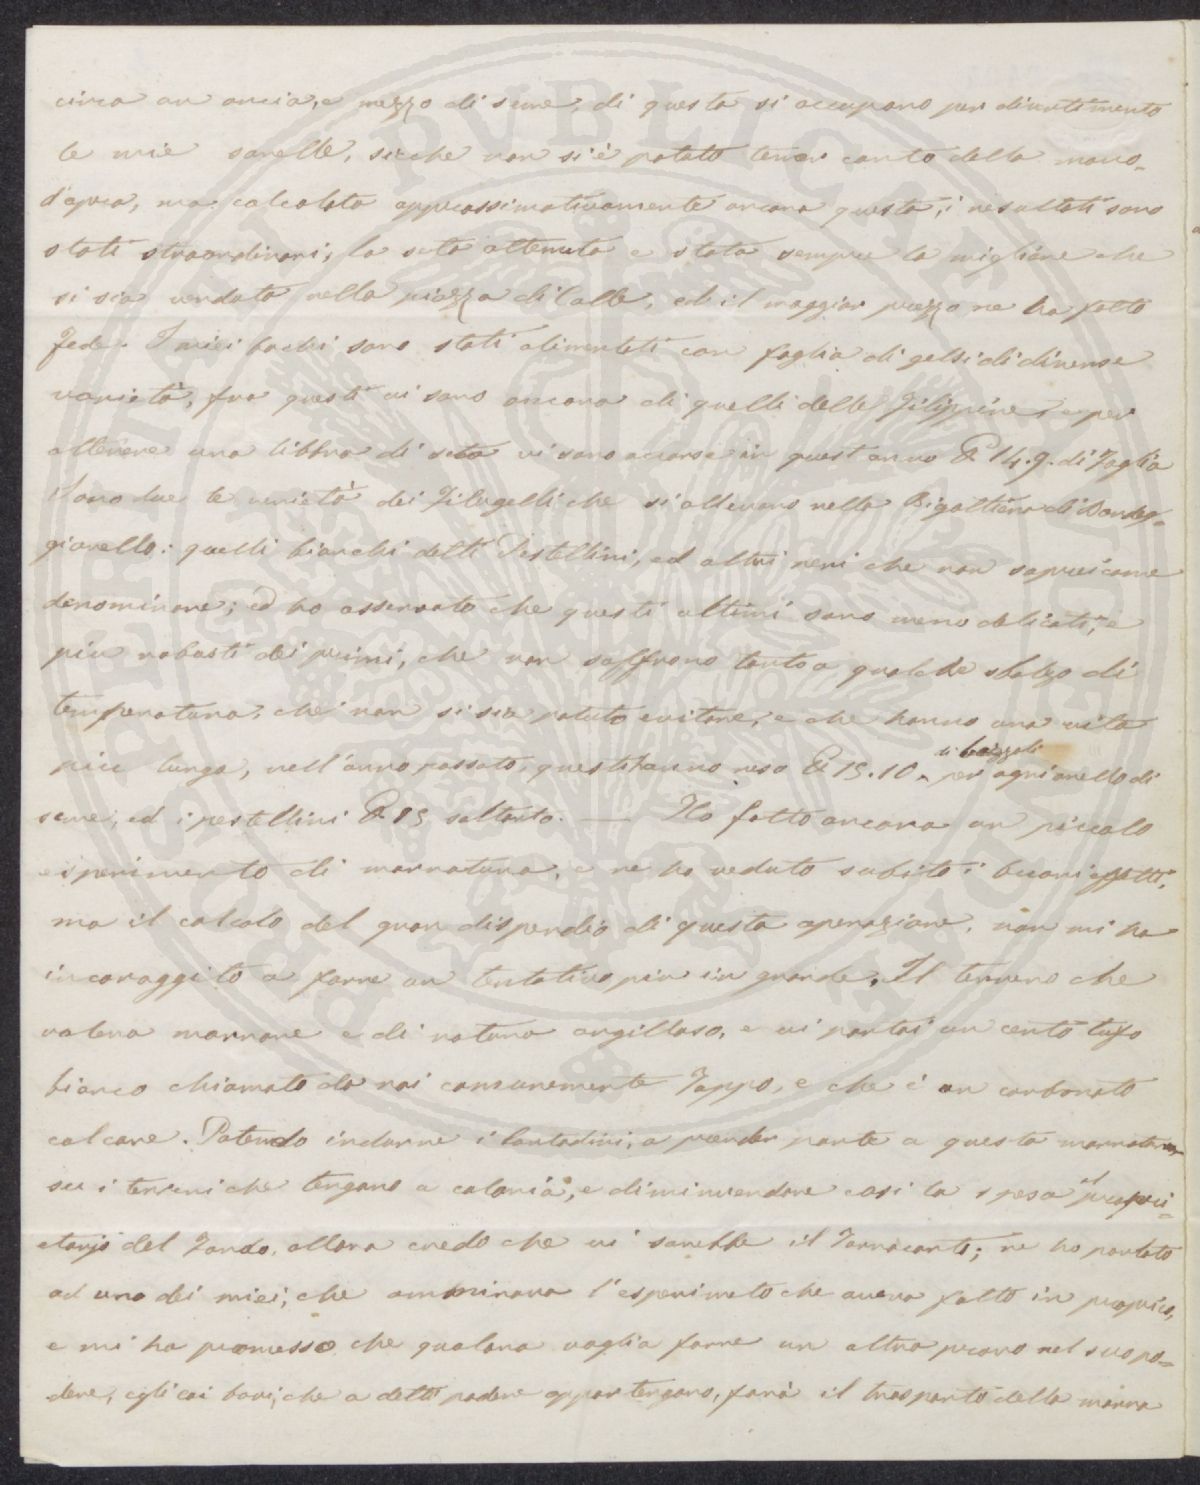 circa un'oncia, e mezzo di seme, di questa si occupano per divertimento
le mie sorelle, sicche non si è potuto tener conto della mano-
d'opera, ma calcolata approssimativamente ancora questa, i resultati sono
stati straordinari, la seta ottenuta e stata sempre la migliore che
si sia venduta nella piazza di Colle, ed il maggior prezzo ne ha fatto
fede. I miei bachi sono stati alimentati con foglia di gelsi di diverse
varietà, fra questi vi sono ancora di quelli delle Filippine, e per
ottenere una libbra di seta vi sono occorse in quest'anno 14.9. di foglia
Sono due le varietà dei Filugelli che si allevano nella Bigattiera di
gianello: quelli bianchi detti Pestellini, ed altri neri che non saprei come
denominare; ed ho osservato che questi ultimi sono meno delicati, e
più robusti dei primi, che non soffrono tanto a qualche sbalzo di
temperatura, che non si sia potuto evitare, e che hanno una vita
più lunga, nell'anno passato, questi hanno reso 15.10. per ogni anello di
di bozzoli
seme, ed i pestellini 15 soltanto. — Ho fatto ancora un piccolo
esperimento di marnatura, e ne ho veduto subito i buoni effetti,
ma il calcolo del gran dispendio di questa operazione, non mi ha
incoraggito a farne un tentativo più in grande. Il terreno che
voleva marnare e di natura argilloso, e vi portai un certo tufo
bianco chiamato da noi comunemente Tappo, e che è un carbonato
calcare. Potendo indurre i Contadini, a prender parte a questa marnatura
su i terreni che tengono a colonia, e diminuendone così la spesa al propri-
etario del Fondo, allora credo che vi sarebbe il Tornaconto; ne ho parlato
ad uno dei miei, che ammirava l'esperimento che aveva fatto in proprio,
e mi ha promesso che qualora voglia farne un altra prova nel suo po-
dere, egli coi bovi, che a detto podere appartengono, farà il trasporto della marna